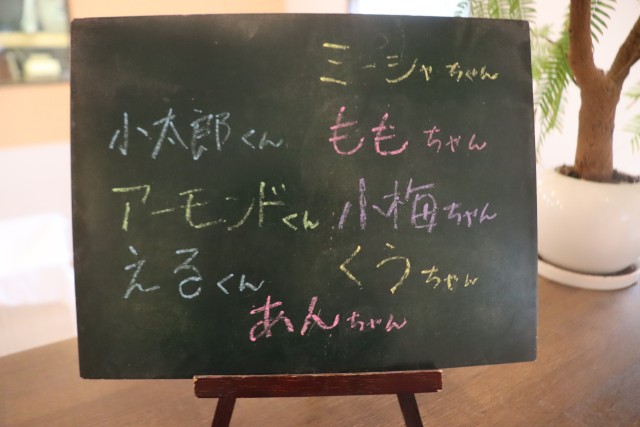 ミーシャちゃん
小太郎くん ももちゃん
アーモンドくん 小梅ちゃん
えるくん くうちゃん
あんちゃん